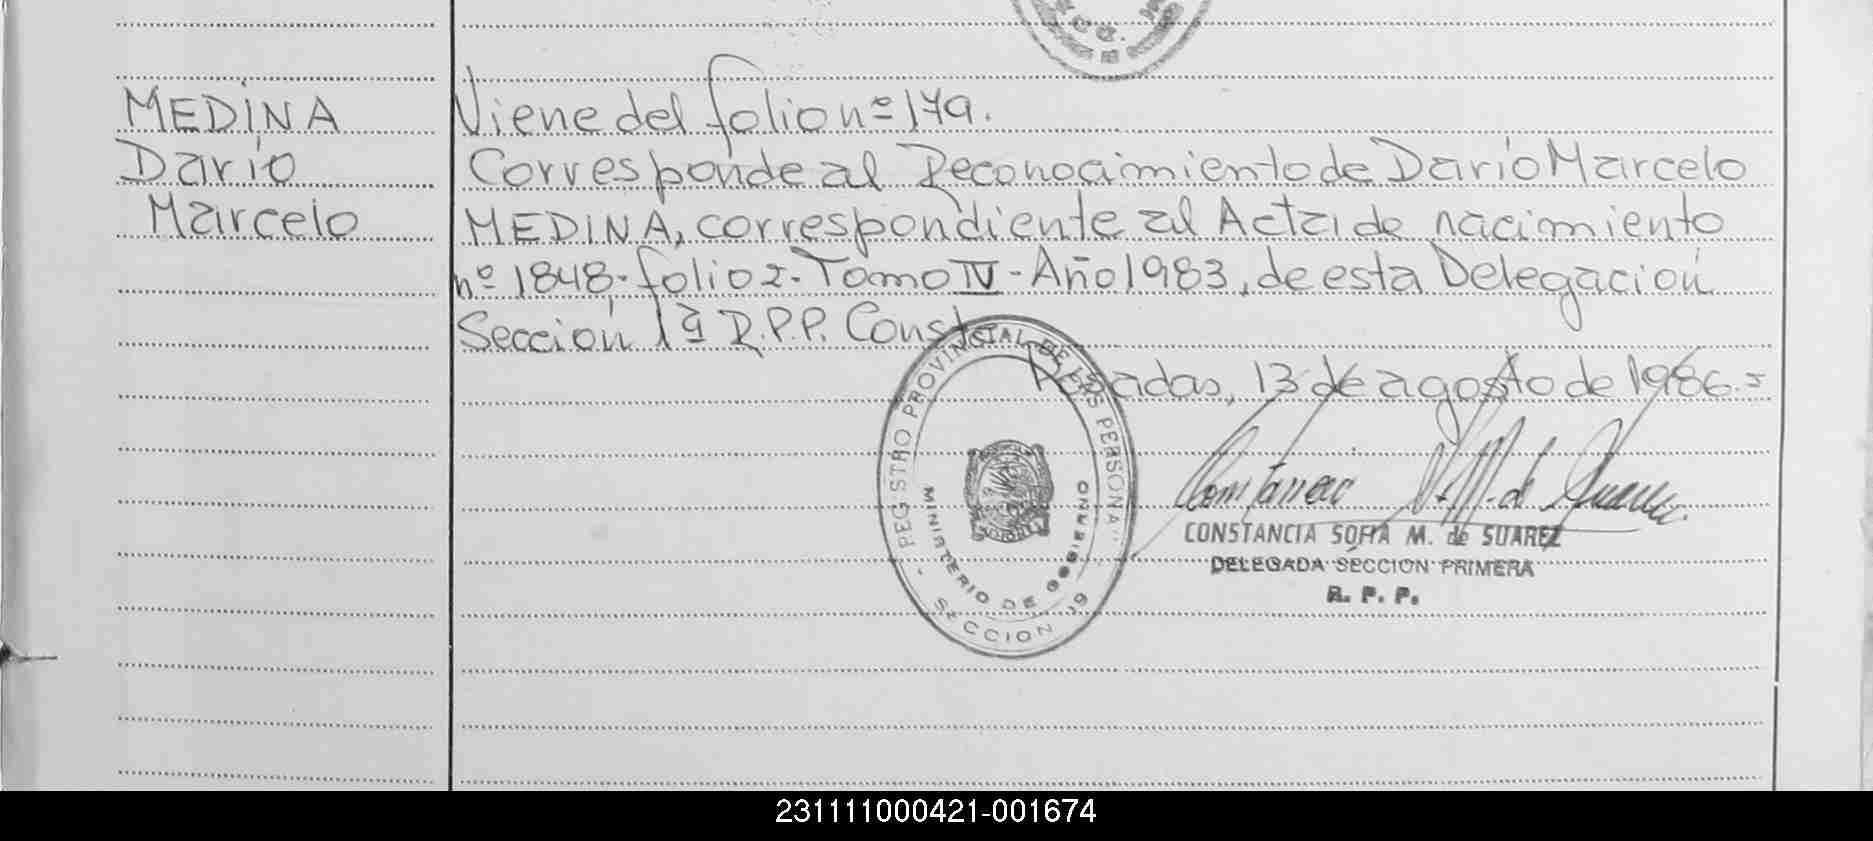 MEDINA
Darío
Marcelo
Viene del folio nº 179.
Corresponde al Reconocimiento de Darío Marcelo
MEDINA, correspondiente al Acta de nacimiento
nº 1848- folio 2- Tomo IV - Año 1983, de esta Delegación
Sección 1ª R.P.P. Conste
Posadas, 13 de agosto de 1986.=
REGISTRO PROVINCIAL DE LAS PERSONAS
MINISTERIO DE GOBIERNO
SECCION 1ª
CONSTANCIA SOFIA M. de SUAREZ
DELEGADA SECCION PRIMERA
R. P. P.
231111000421-001674